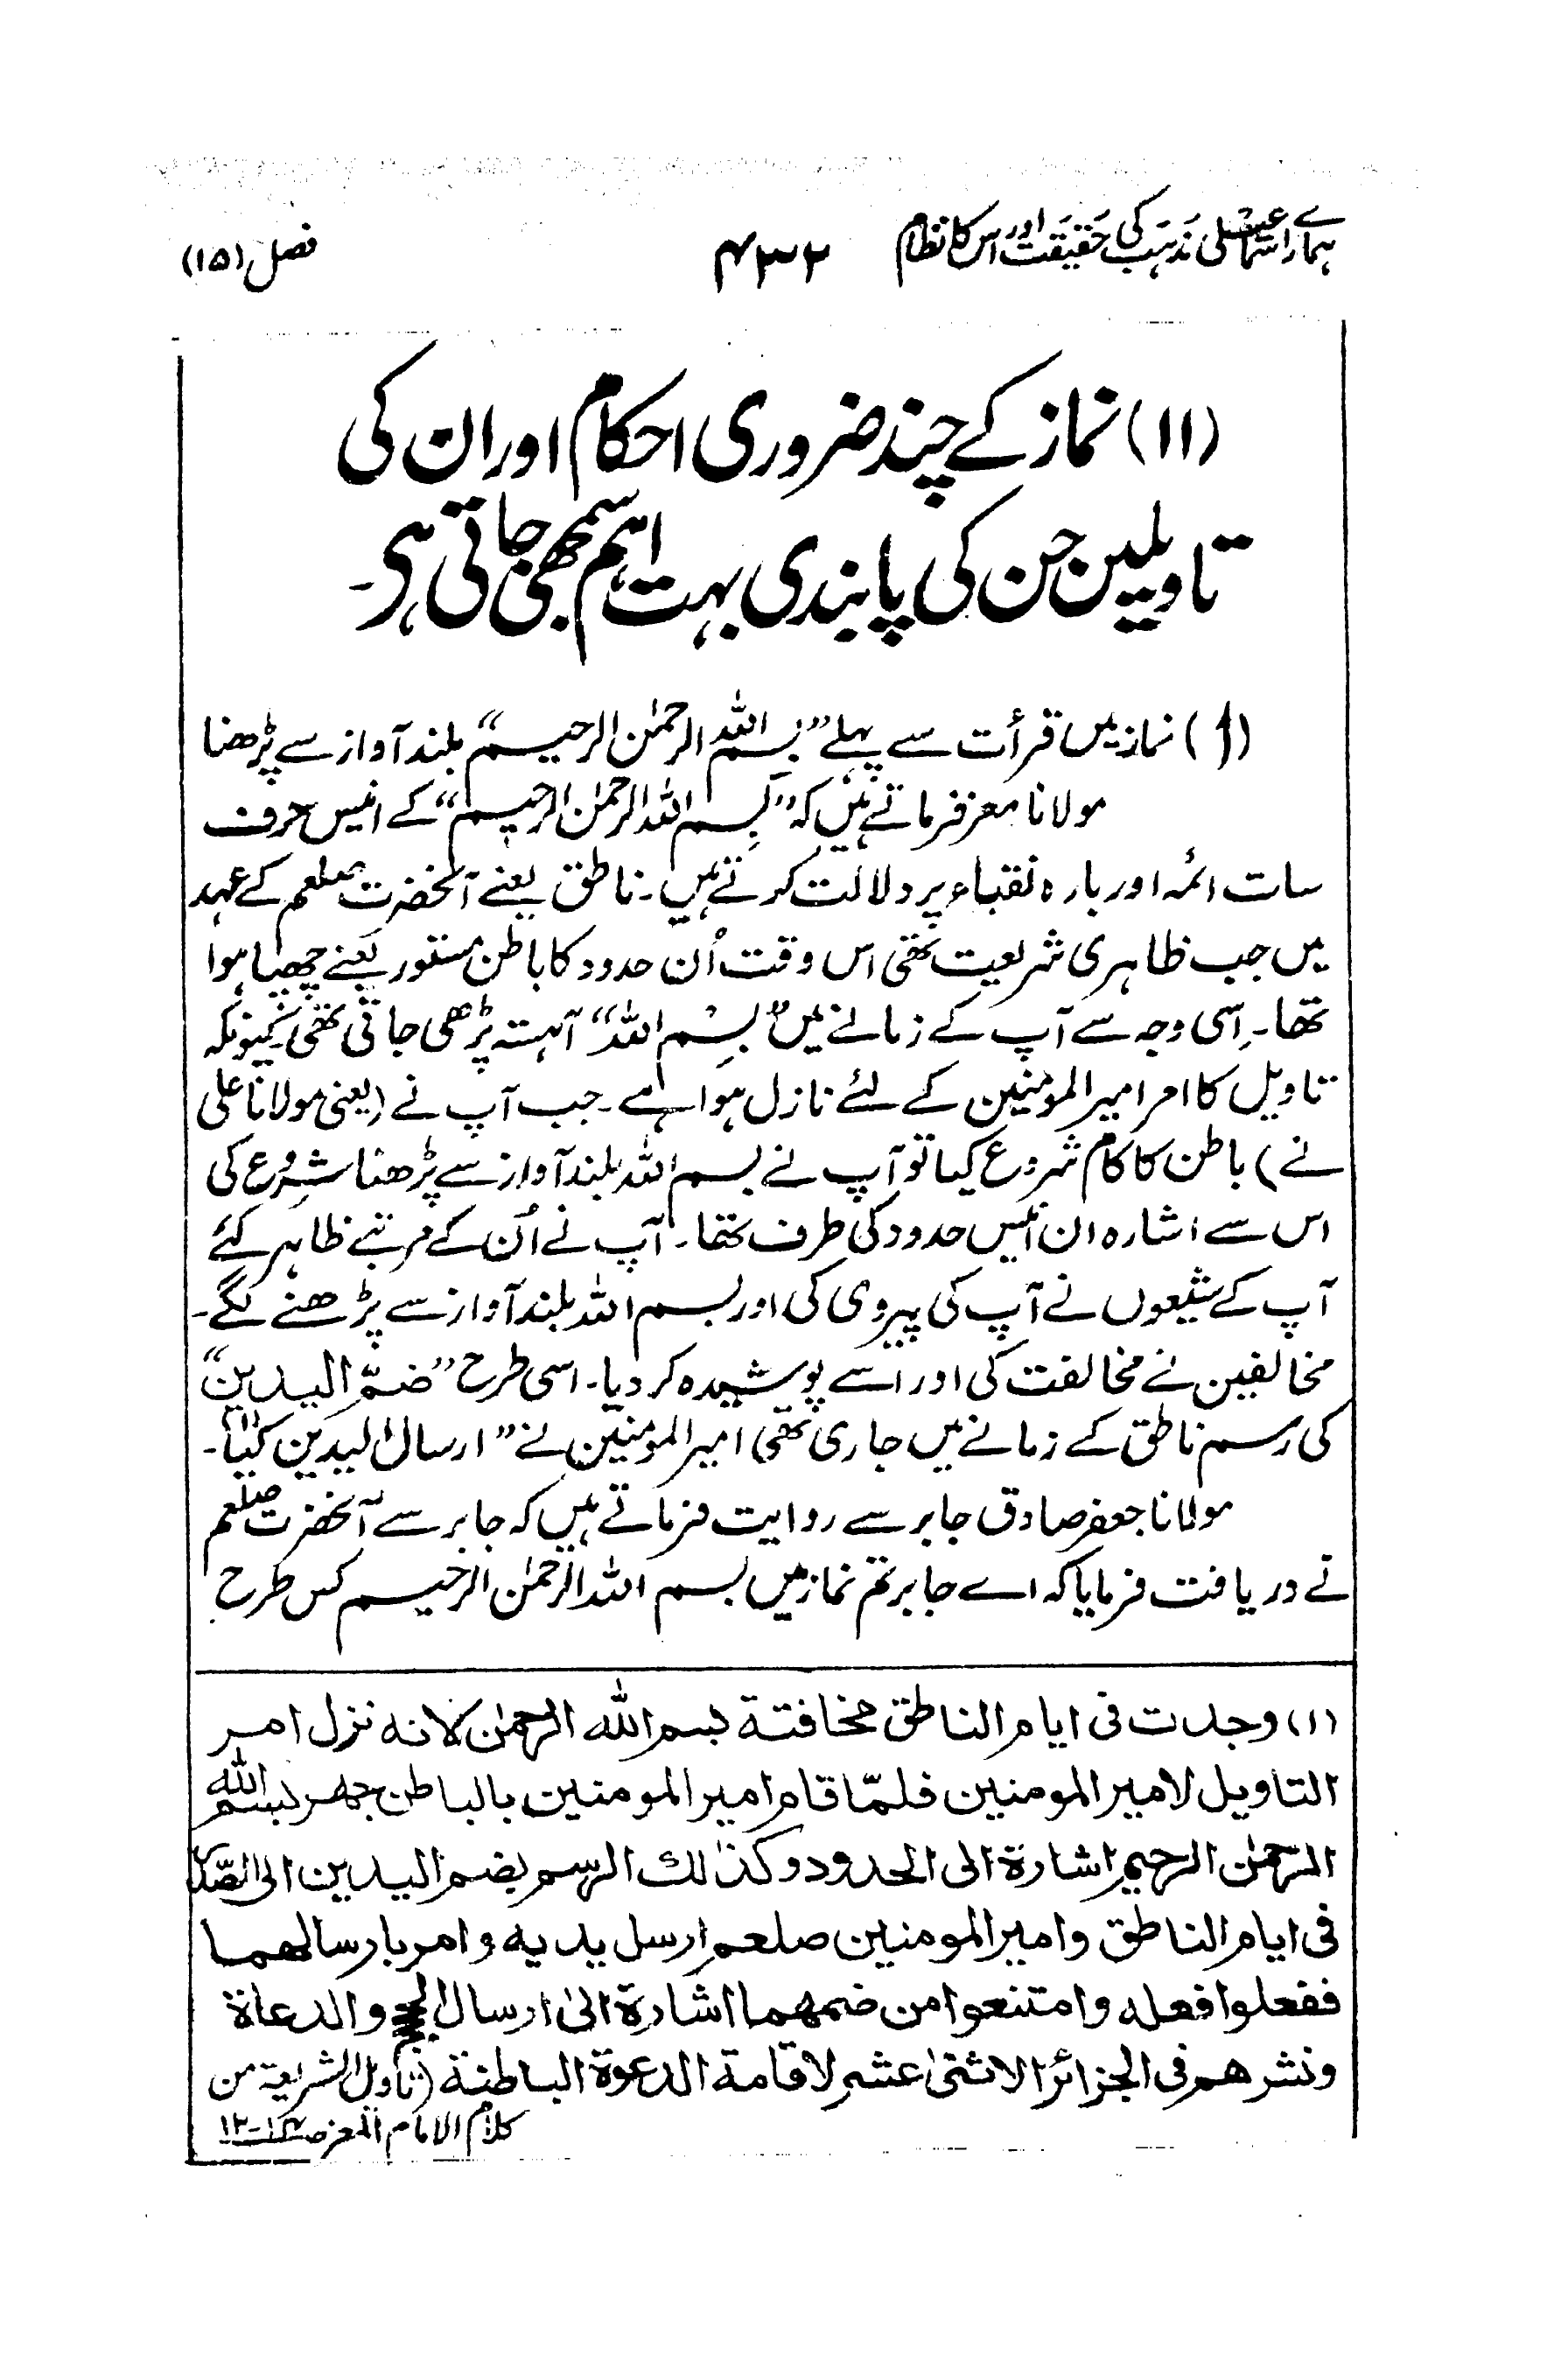 ہمارے اسماعیلی مذہب کی حقیقت اور اس کا نظام ۴۳۲ فصل (۱۵)
(۱۱) نماز کے چند ضروری احکام اور ان کی
تاویلیں جن کی پابندی بہت اہم سمجھی جاتی ہی۔
(۱) نماز میں قرأت سے پہلے ”بسم اللہ الرحمٰن الرحیم“ بلند آواز سے پڑھنا
مولانا معز فرماتے ہیں کہ ”بسم اللہ الرحمٰن الرحیم“ کے انیس حرف
سات ائمہ اور بارہ نقباء پر دلالت کرتے ہیں۔ ناطق یعنے آنحضرت صلعم کے عہد
میں جب ظاہری شریعت تھی اس وقت اُن حدود کا باطن مستور یعنے چھپا ہوا
تھا۔ اِسی وجہ سے آپ کے زمانے میں ”بسم اللہ“ آہستہ پڑھی جاتی تھی کیونکہ
تاویل کا امر امیر المومنین کے لئے نازل ہوا ہے۔ جب آپ نے (یعنی مولانا علی
نے) باطن کا کام شروع کیا تو آپ نے بسم اللہ بلند آواز سے پڑھنا شروع کی
اس سے اشارہ ان انیس حدود کی طرف تھا۔ آپ نے اُن کے مرتبے ظاہر کئے
آپ کے شیعوں نے آپ کی پیروی کی اور بسم اللہ بلند آواز سے پڑھنے لگے۔
مخالفین نے مخالفت کی اور اسے پوشیدہ کر دیا۔ اسی طرح ”ضمّ الیدین“
کی رسم ناطق کے زمانے میں جاری تھی امیر المومنین نے ”ارسال الیدین“ کیا۔
مولانا جعفر صادق جابر سے روایت فرماتے ہیں کہ جابر سے آنحضرت صلعم
نے دریافت فرمایا کہ اے جابر تم نماز میں بسم اللہ الرحمٰن الرحیم کس طرح
(۱) وجدت فی ایام الناطق مخافتة بسم اللہ الرحمٰن لانه نزل امر
التاویل لامیر المومنین فلمّا قام امیر المومنین بالباطن جهر بسم اللہ
الرحمٰن الرحیم اشارة الی الحدود وکذالك الرسم بضم الیدین الی الصّدر
فی ایام الناطق وامیر المومنین صلعم ارسل یدیه وامر بارسالهما
ففعلوا فعله وامتنعوا من ضمهما اشارة الیٰ ارسال الحجج والدعاة
ونشرهم فی الجزائر الاثنیٰ عشر لاقامة الدعوة الباطنة (تاویل الشریعۃ من
کلام الامام المعز صـ ۱۲-۱۳